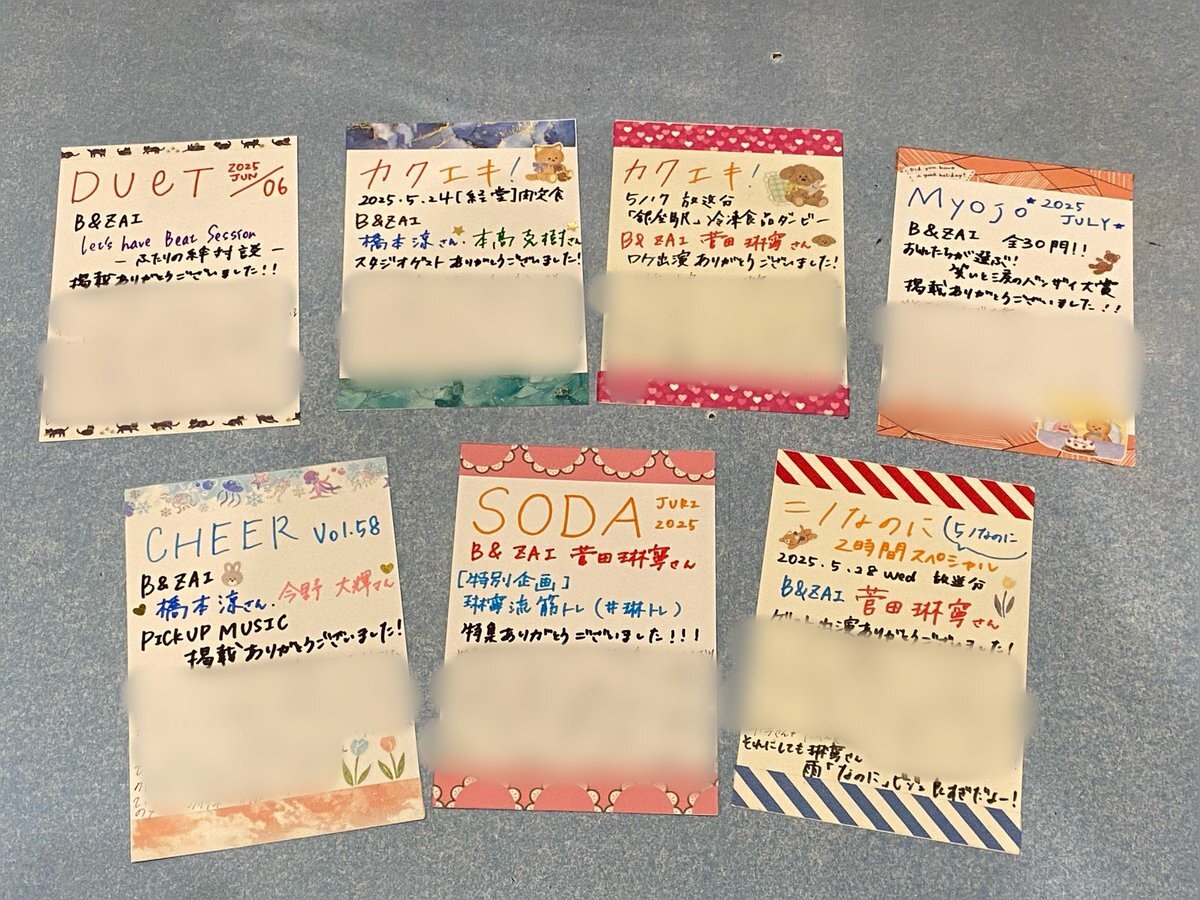 DUeT 2025 JUN/06
B&ZAI
Let's have Beat Session
－ふたりの絆対談－
掲載ありがとうございました!!
カクエキ!
2025.5.24［経堂］肉定食
B&ZAI
橋本涼さん、本髙克樹さん
スタジオゲストありがとうございました!
カクエキ!
5/17 放送分
「銀座駅」冷凍食品ダービー
B&ZAI 菅田琳寧さん
ロケ出演ありがとうございました!
Did you have
a good holiday?
Myojo 2025
JULY
B&ZAI 全30問!!
おれたちが選ぶ!
笑いと涙のバンザイ大賞
掲載ありがとうございました!!
CHEER Vol.58
B&ZAI
橋本涼さん、今野大輝さん
PICKUP MUSIC
掲載ありがとうございました!
SODA JURI
2025
B&ZAI 菅田琳寧さん
［特別企画］
琳寧流筋トレ(#琳トレ)
特集ありがとうございました!!!
ニノなのに(5ノなのに
2時間スペシャル
2025.5.28 wed 放送分
B&ZAI 菅田琳寧さん
ゲスト出演ありがとうございました!
それにしても琳寧さん
雨「なのに」ビジュ良すぎだよー!